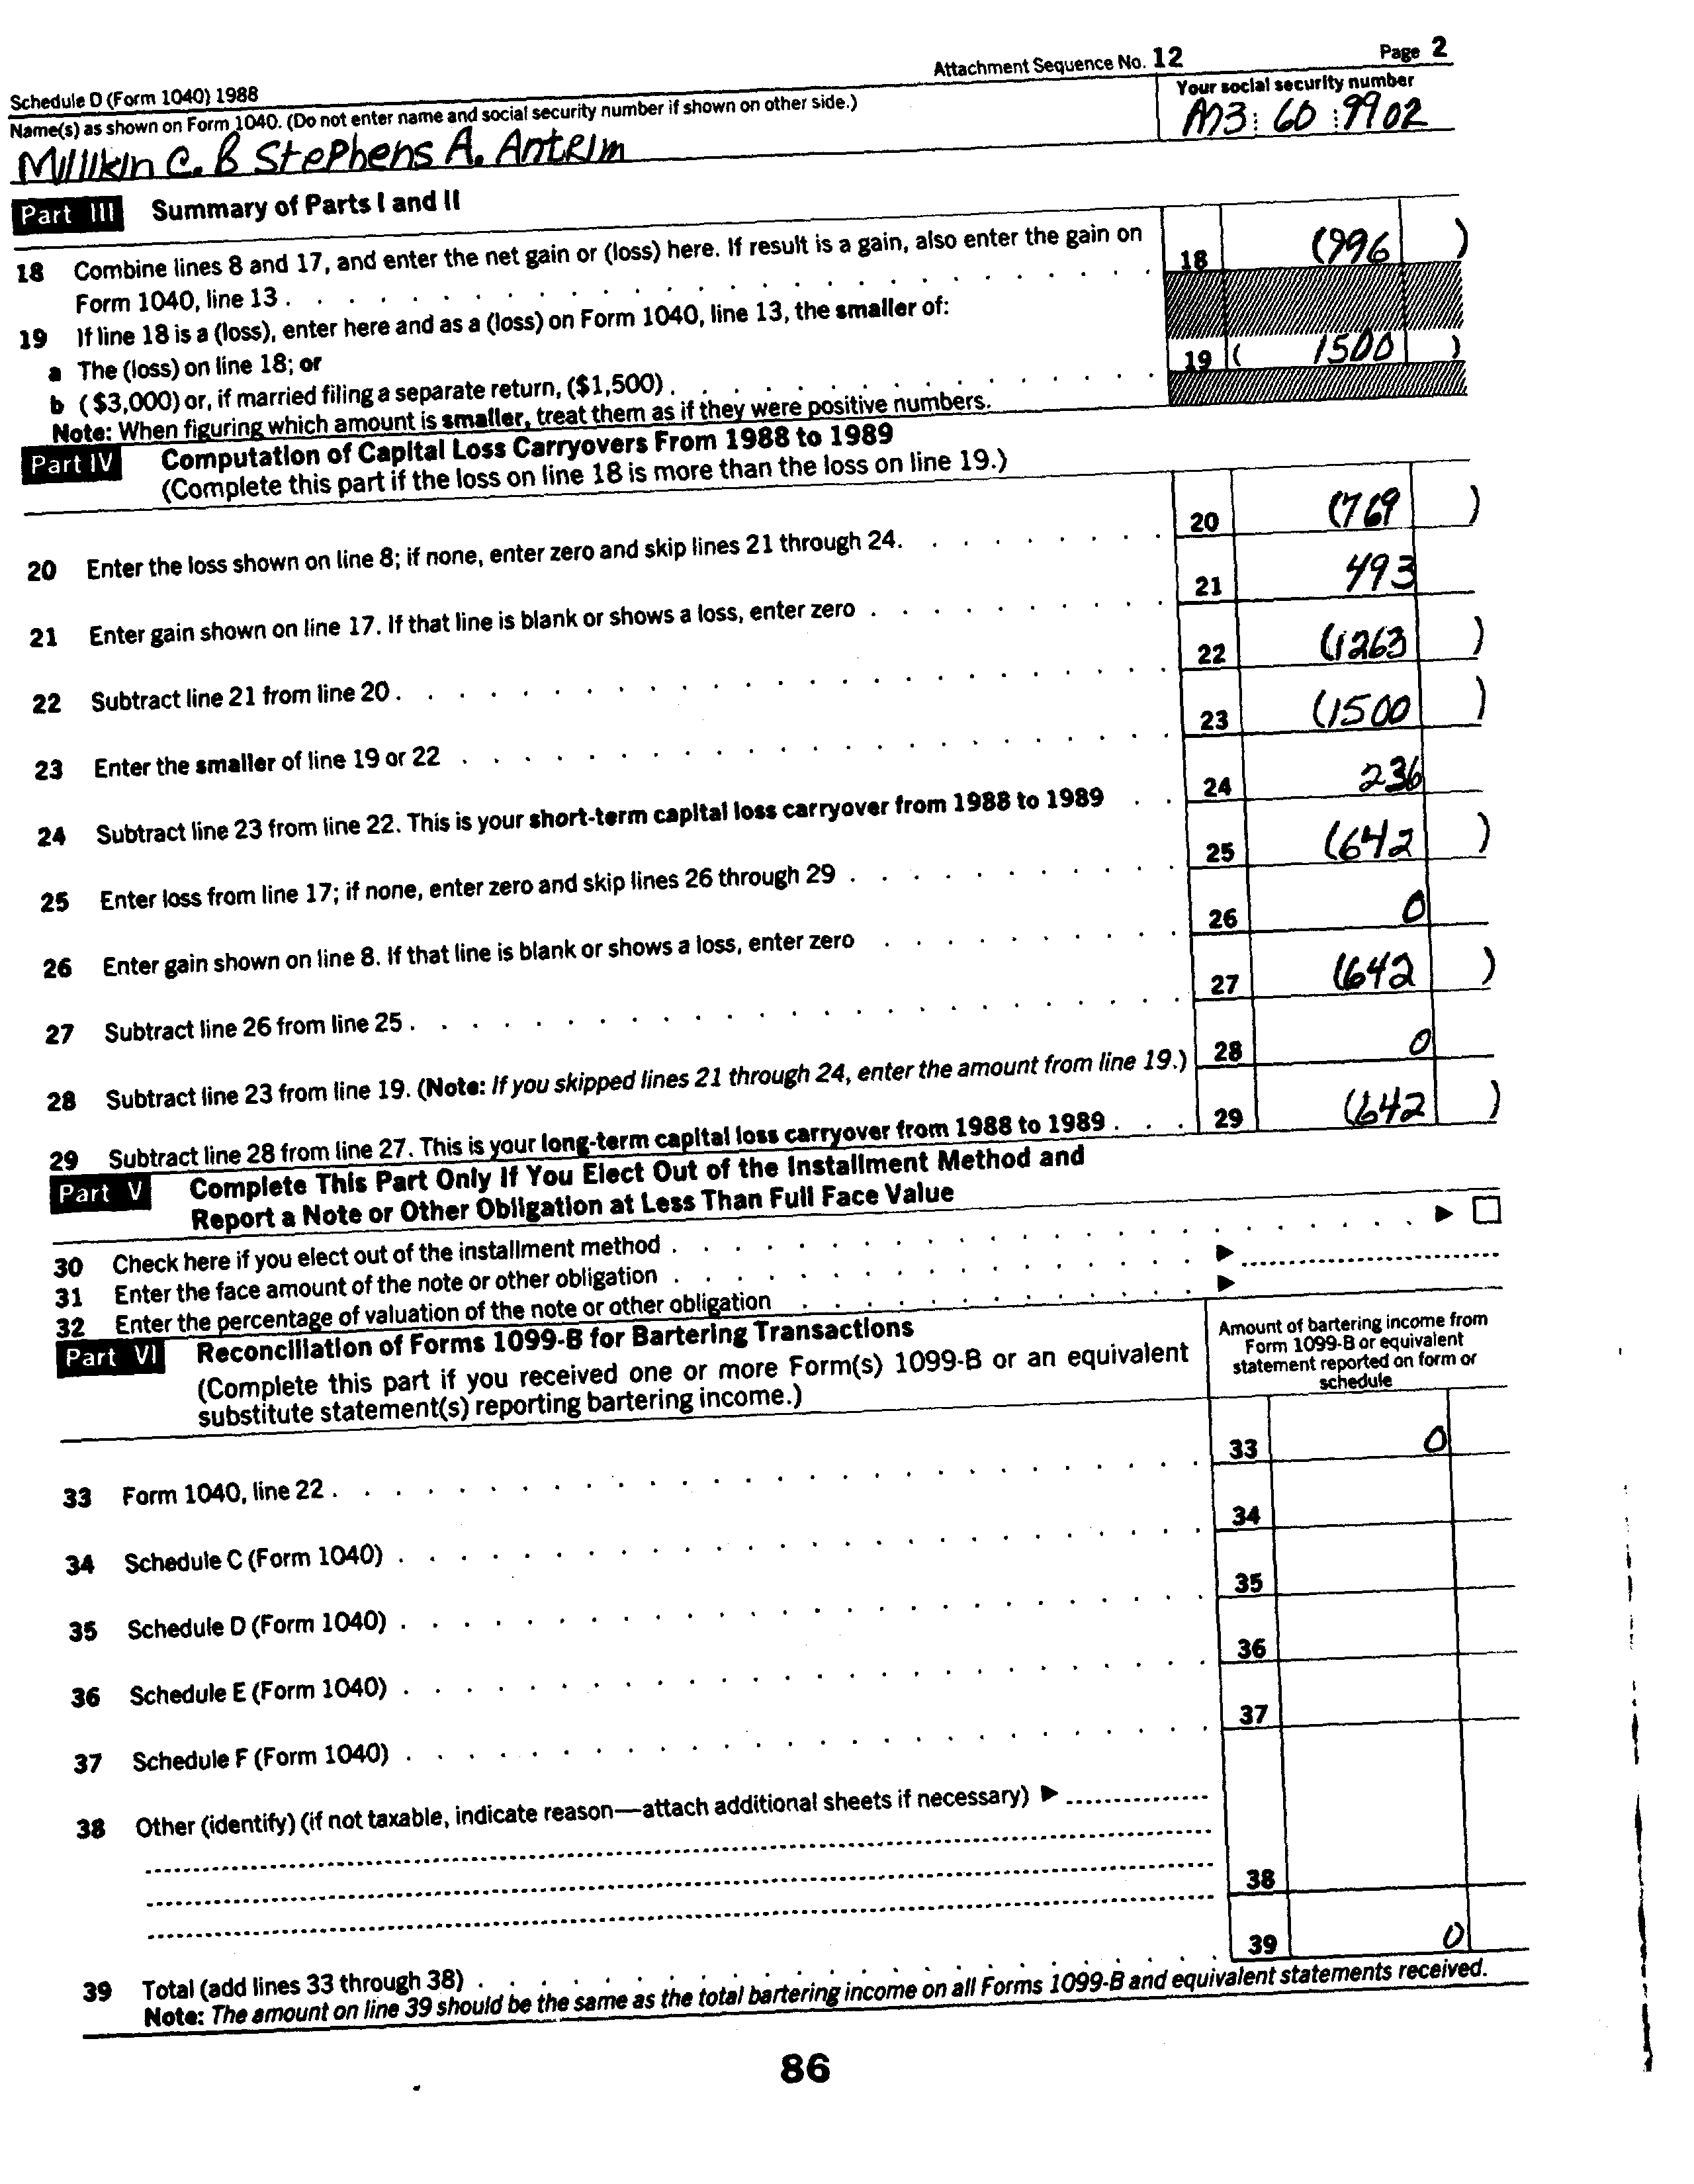 Schedule D (Form 1040) 1988 Attachment Sequence No. 12 Page 2
Name(s) as shown on Form 1040. (Do not enter name and social security number if shown on other side.) Your social security number
Millikin C. B Stephens A. Antrim 60 9902
Part III Summary of Parts I and II
18 Combine lines 8 and 17, and enter the net gain or (loss) here. If result is a gain, also enter the gain on
Form 1040, line 13 . 18 (996 )
19 If line 18 is a (loss), enter here and as a (loss) on Form 1040, line 13, the smaller of:
a The (loss) on line 18; or
b ($3,000) or, if married filing a separate return, ($1,500) . 19 ( 1500 )
Note: When figuring which amount is smaller, treat them as if they were positive numbers.
Part IV Computation of Capital Loss Carryovers From 1988 to 1989
(Complete this part if the loss on line 18 is more than the loss on line 19.)
20 Enter the loss shown on line 8; if none, enter zero and skip lines 21 through 24. 20 (769 )
21 Enter gain shown on line 17. If that line is blank or shows a loss, enter zero . 21 493
22 Subtract line 21 from line 20 . 22 (1263 )
23 Enter the smaller of line 19 or 22 . 23 (1500 )
24 Subtract line 23 from line 22. This is your short-term capital loss carryover from 1988 to 1989 . 24 236
25 Enter loss from line 17; if none, enter zero and skip lines 26 through 29 . 25 (642 )
26 Enter gain shown on line 8. If that line is blank or shows a loss, enter zero . 26 0
27 Subtract line 26 from line 25 . 27 (642 )
28 Subtract line 23 from line 19. (Note: If you skipped lines 21 through 24, enter the amount from line 19.) 28 0
29 Subtract line 28 from line 27. This is your long-term capital loss carryover from 1988 to 1989 . 29 (642 )
Part V Complete This Part Only If You Elect Out of the Installment Method and
Report a Note or Other Obligation at Less Than Full Face Value
30 Check here if you elect out of the installment method . ▶ ☐
31 Enter the face amount of the note or other obligation . ▶
32 Enter the percentage of valuation of the note or other obligation . ▶
Part VI Reconciliation of Forms 1099-B for Bartering Transactions
(Complete this part if you received one or more Form(s) 1099-B or an equivalent
substitute statement(s) reporting bartering income.)
Amount of bartering income from
Form 1099-B or equivalent
statement reported on form or
schedule
33 Form 1040, line 22 . 33 0
34 Schedule C (Form 1040) . 34
35 Schedule D (Form 1040) . 35
36 Schedule E (Form 1040) . 36
37 Schedule F (Form 1040) . 37
38 Other (identify) (if not taxable, indicate reason—attach additional sheets if necessary) ▶
38
39 Total (add lines 33 through 38) . 39 0
Note: The amount on line 39 should be the same as the total bartering income on all Forms 1099-B and equivalent statements received.
86